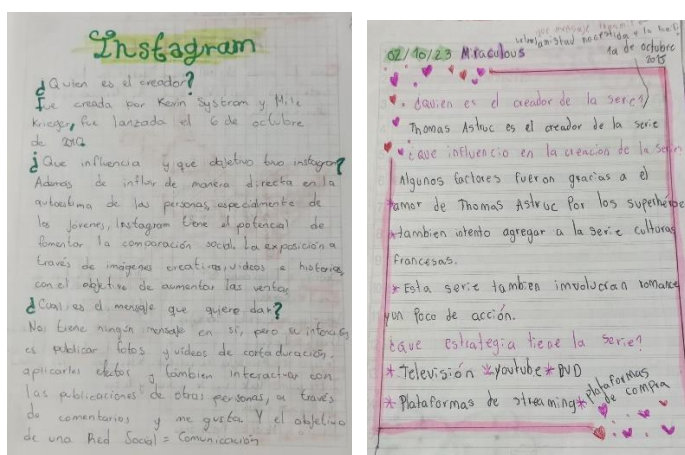 Instagram
¿Quien es el creador?
Fue creada por Kevin Systrom y Mike
Krieger, fue lanzada el 6 de octubre
de
¿Que influencia y que objetivo tuvo instagram?
Ademas de influir de manera directa en la
autoestima de las personas, especialmente de
los jovenes, Instagram tiene el potencial de
fomentar la comparación social. La exposición a
través de imágenes creativas, videos e historias,
con el objetivo de aumentar las ventas
¿Cual es el mensaje que quiere dar?
No tiene ningún mensaje en sí, pero su intención
es publicar fotos y videos de corta duración.
aplicarles efectos y tambien interactuar con
las publicaciones de otras personas, a través
de comentarios y me gusta Y el objetivo
de una Red Social = Comunicación
que mensaje
1a de octubre
2015
02/10/23 Miraculous
¿Quién es el creador de la serie?
Thomas Astruc es el creador de la serie
¿que influencio en la creacion de la serie
Algunos factores fueron gracias a el
*amor de Thomas Astruc Por los superhéroe
*tambien intento agregar a la serie culturas
francesas.
*Esta serie tambien involucran romance
y un poco de acción.
¿que estrategia tiene la serie?
*Televisión *youtube *DVD
*Plataformas de streaming *plataformas
de compra